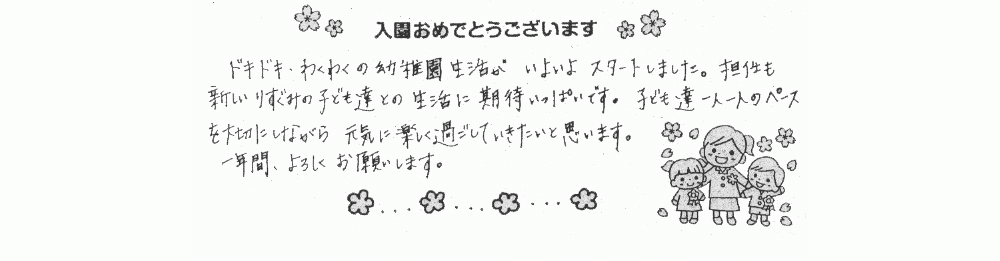 入園おめでとうございます
ドキドキ・わくわくの幼稚園生活が いよいよ スタートしました。担任も
新しいりすぐみの子ども達との生活に期待いっぱいです。子ども達一人一人のペース
を大切にしながら 元気に楽しく過ごしていきたいと思います。
一年間、よろしくお願いします。